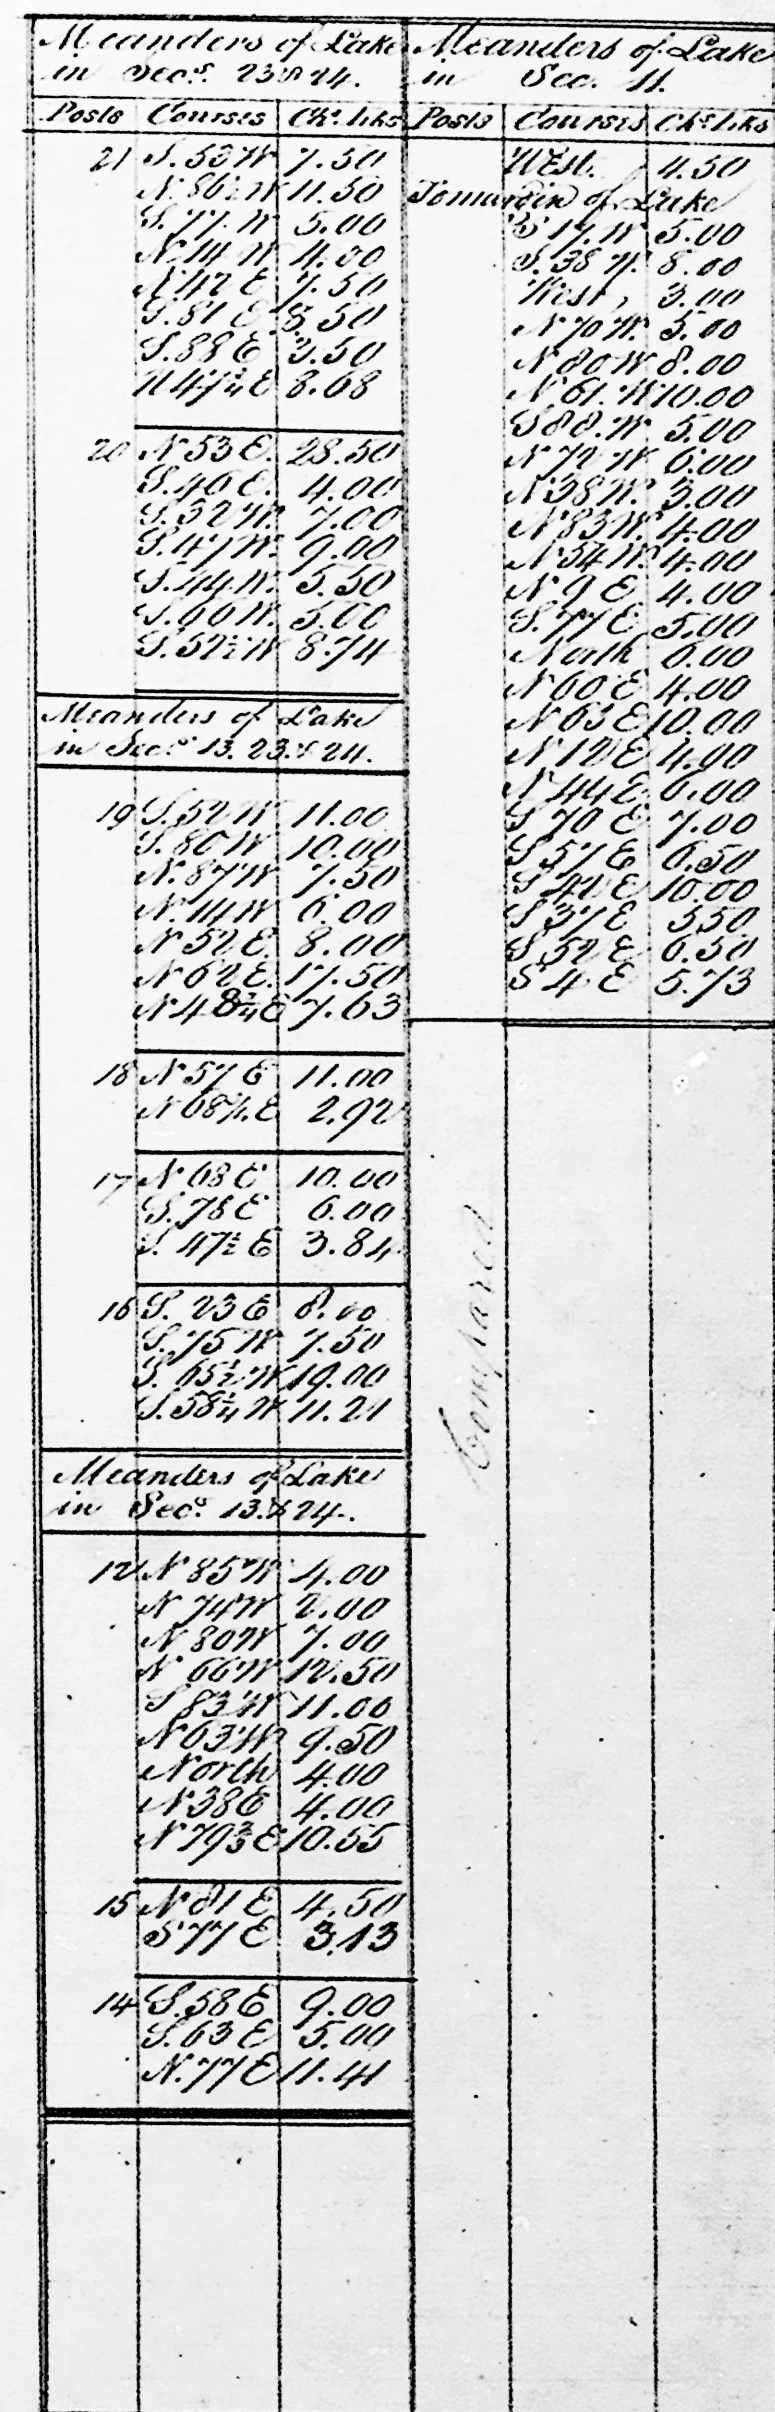 Meanders of Lake
in Secs. 23 & 24.
Posts Courses Chs. Lks
21 S. 53 W 7.50
N. 86½ W 11.50
S. 77. W 5.00
N. 14 W 4.00
N. 42 E 7.50
S. 81 E 3.50
S. 88 E 3.50
N 47¼ E 8.68
20 N 53 E. 28.50
S. 46 E. 4.00
S. 32 W. 7.00
S. 47 W. 9.00
S. 44. W. 5.50
S. 60 W. 5.00
S. 52½ W 8.74
Meanders of Lake
in Secs. 13. 23. & 24.
19 S. 52 W 11.00
S. 80 W 10.00
N. 87 W 7.50
N. 14 W 6.00
N 52 E. 8.00
N 62 E. 17.50
N 48¾ E 7.63
18 N 57 E 11.00
N 68 E 2.92
17 N 68 E 10.00
S. 78 E 6.00
S. 47½ E 3.84
16 S. 23 E 8.00
S. 75 W 7.50
S. 65½ W 19.00
S. 58¼ W 11.21
Meanders of Lake
in Secs. 13. & 24.
12 N 85 W 4.00
N 74 W 2.00
N 80 W 7.00
N 66 W 12.50
S 83 W 11.00
N 63 W 9.50
North 4.00
N 38 E 4.00
N 79⅔ E 10.55
15 N 81 E 4.50
S 77 E 3.13
14 S. 58 E 9.00
S. 63 E 5.00
N. 77 E 11.41
Meanders of Lake
in Sec. 11.
Posts Courses Chs. Lks
West. 4.50
To margin of Lake
S 17. W 5.00
S. 38 W. 8.00
West, 3.00
N 70 W. 5.00
N 80 W 8.00
N 61. W 10.00
S 88. W 5.00
N 72 W 6.00
N 38 W. 3.00
N 83 W. 4.00
N 54 W. 4.00
N 9 E 4.00
S. 77 E 5.00
North 6.00
N 60 E 4.00
N 63 E 10.00
N 12 E 4.00
N 44 E 6.00
S 70 E 7.00
S 57 E 6.50
S 42 E 10.00
S 37 E 3.50
S. 52 E 6.50
S 4 E 5.73
Compared